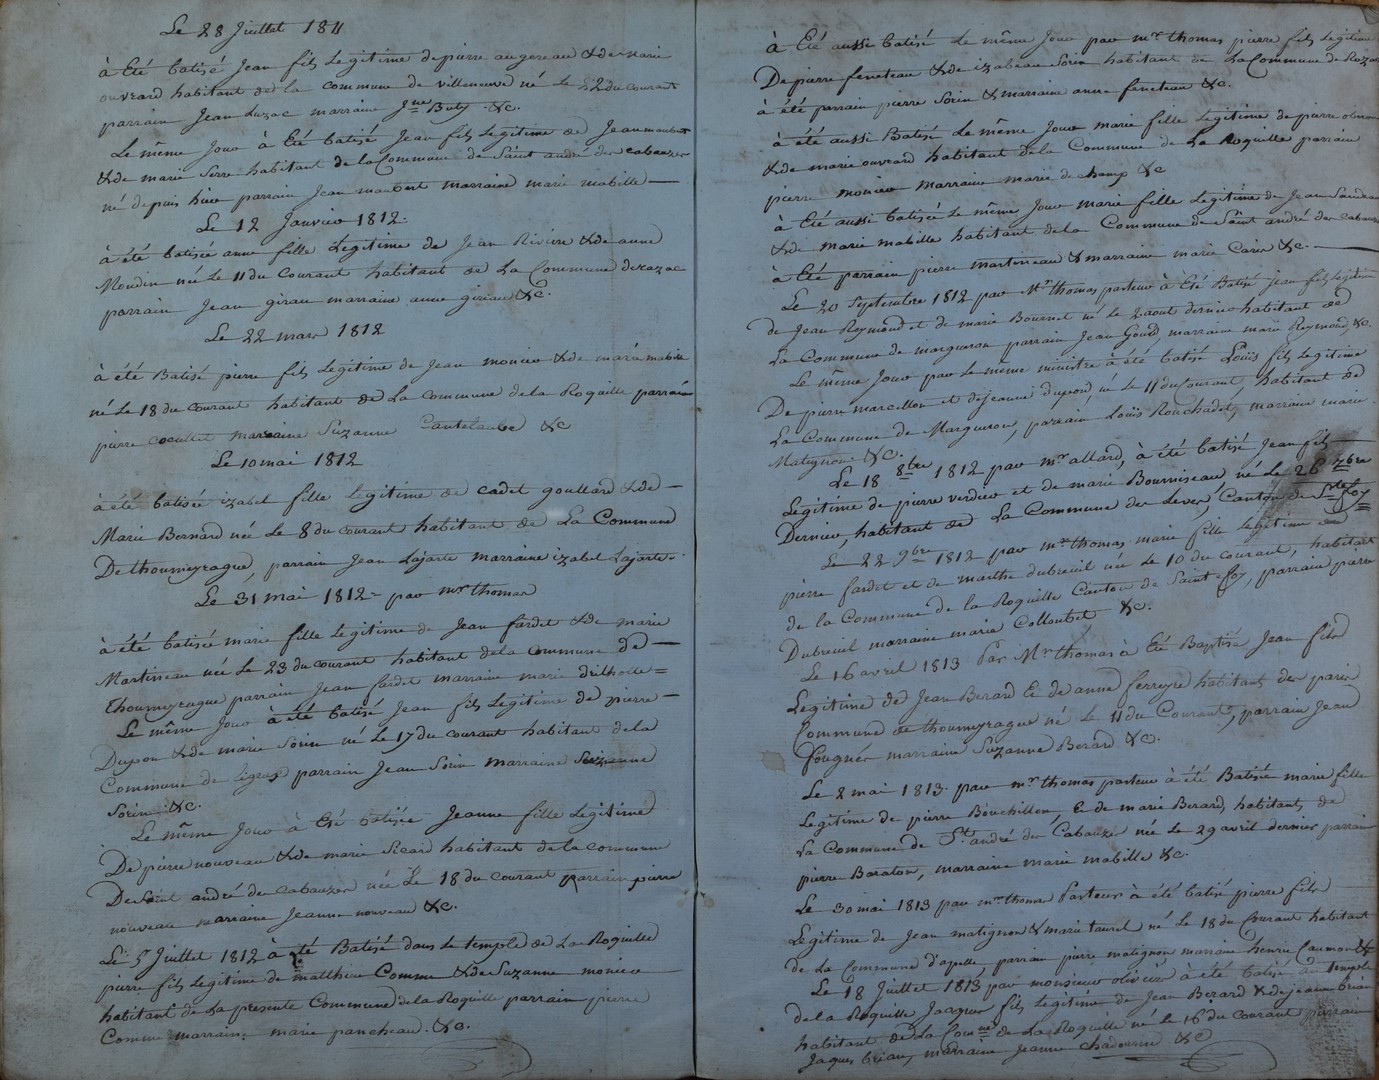 Le 28 Juillet 1811
à Eté batisé Jean fils Legitime de pierre augereau & de marie
ouvrard habitant de la commune de villeneuve né le 22 du courant
parrain Jean Luzac marraine Jne Buty &c.
Le même Jour à Eté batisé Jean fils Legitime de Jean maubert
& de marie Serre habitant de la Commune de Saint andré de cabauzes
né depuis hier parrain Jean maubert marraine marie mabille
Le 12 Janvier 1812.
à été batisée anne fille Legitime de Jean Rivière & de anne
Moudin née Le 11 du Courant habitant de La Commune de razac
parrain Jean girau marraine anne giraud &c.
Le 22 mars 1812
à été Batisé pierre fils Legitime de Jean monier & de marie mabille
né Le 18 du courant habitant de La Commune de la Roquille parrain
pierre cocullet marraine Suzanne Cantelaube &c
Le 10 mai 1812
à été batisée izabel fille Legitime de cadet goullard & de
Marie Bernard née Le 8 du courant habitant de La Commune
De thoumeyrague, parrain Jean Lajarte marraine izabel Lajarte.
Le 31 mai 1812 par mr thomas
à été batisée marie fille Legitime de Jean fardet & de marie
Martineau née Le 23 du courant habitant de la commune de
thoumeyrague parrain Jean fardet marraine marie drilholle
Le même Jour à été batisé Jean fils Legitime de pierre
Dupon & de marie Sorin né Le 17 du courant habitant de la
Commune de Ligeux parrain Jean Sorin marraine Suzanne
Sorin &c.
Le même Jour à Eté batisée Jeanne fille Legitime
De pierre nouveau & de marie Sicard habitant de la commune
De Saint andré de cabauzes née Le 18 du courant parrain pierre
nouveau marraine Jeanne nouveau &c.
Le 5 Juillet 1812 à été Batisé dans Le temple de La Roquille
pierre fils Legitime de matthieu Comme & de Suzanne monier
habitant de La presente Commune de la Roquille parrain pierre
Comme marraine marie pancheau. &c.
à Eté aussi batisé Le même Jour par mr thomas pierre fils Legitime
De pierre feneteau & de izabeau Sorin habitant de La Commune de Razac
à été parrain pierre Sorin & marraine anne feneteau &c.
à été aussi Batisée Le même Jour marie fille Legitime de pierre
& de marie ouvrard habitant de la Commune de La Roquille parrain
pierre monier marraine marie dechamp &c
à Eté aussi batisée Le même Jour marie fille Legitime de Jean
& de marie mabille habitant de la Commune de Saint andré de cabauzes
à Eté parrain pierre martineau & marraine marie Caris &c.
Le 20 Septembre 1812 par Mr thomas pasteur à Eté Batisé Jean fils Legitime
de Jean Reymond et de marie Bournet né le 2 aout dernier habitant de
La Commune de margueron parrain Jean Gourd, marraine marie Reymond, &c.
Le même Jour par Le même ministre à été batisé Louis fils Legitime
De pierre marcellon et de jeanne dupond né le 11 du Courant, habitant de
La Commune de Margueron, parrain Louis Rouchadet, marraine marie
Matignon &c.
Le 18 8bre 1812 par mr allard, à été batisé Jean fils
Legitime de pierre verdier et de marie Bournizeau, né Le 26 7bre
Dernier, habitant de La Commune des Leves, Canton de Ste foy
Le 22 9bre 1812 par mr thomas marie fille Legitime de
pierre fardet et de marthe dubreuil née Le 10 du courant, habitant
de la Commune de la Roquille Canton de Saint foy, parrain pierre
Dubreuil marraine marie Colloubet &c.
Le 16 avril 1813 Par Mr thomas à Eté Baptisé Jean fils
Legitime de Jean Berard & de anne ferreyre habitant des paris
Commune de thoumeyrague né le 11 du Courant, parrain Jean
Fougner marraine Suzanne Berard &c.
Le 2 mai 1813. par mr thomas pasteur à été Batisée marie fille
Legitime de pierre Bouchillon, & de marie Berard, habitant, de
La Commune de St. andré de Cabauzes née Le 29 avril dernier parrain
pierre Baraton, marraine marie mabille &c.
Le 30 mai 1813 par mr thomas Pasteur à été batisé pierre fils
Legitime de Jean matignon & marie taurel né Le 18 du Courant habitant
de La Commune d'apelle parrain pierre matignon marraine henrie Caumon &c
Le 18 Juillet 1813 par monsieur olivier à été batisé au temple
de la Roquille Jacques fils Legitime de Jean Berard & de jeanne brian
habitant de La Comne de La Roquille né Le 16 du courant parrain
Jaques brian, marraine Jeanne Chadourne &c